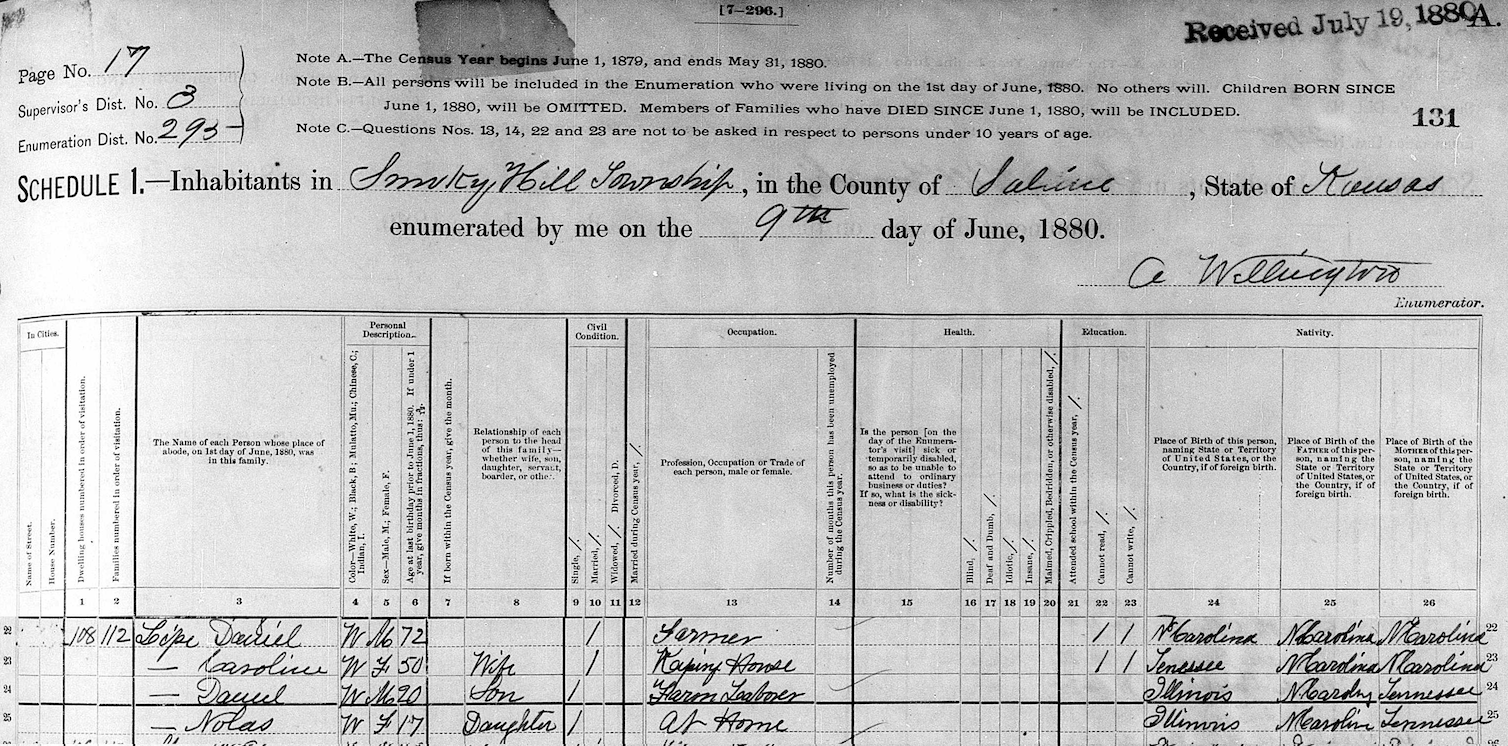 [7-296.]
Received July 19, 1880 A.
Page No. 17
Supervisor's Dist. No. 3
Enumeration Dist. No. 295
Note A.—The Census Year begins June 1, 1879, and ends May 31, 1880.
Note B.—All persons will be included in the Enumeration who were living on the 1st day of June, 1880. No others will. Children BORN SINCE
June 1, 1880, will be OMITTED. Members of Families who have DIED SINCE June 1, 1880, will be INCLUDED.
Note C.—Questions Nos. 13, 14, 22 and 23 are not to be asked in respect to persons under 10 years of age.
131
SCHEDULE 1.—Inhabitants in Smoky Hill Township, in the County of Saline, State of Kansas
enumerated by me on the 9th day of June, 1880.
A Wellington
Enumerator.
In Cities.
Name of Street.
House Number.
Dwelling houses numbered in order of visitation.
Families numbered in order of visitation.
The Name of each Person whose place of
abode, on 1st day of June, 1880, was
in this family.
Personal
Description.
Color—White, W.; Black, B; Mulatto, Mu.; Chinese, C.;
Indian, I.
Sex—Male, M.; Female, F.
Age at last birthday prior to June 1, 1880. If under 1
year, give months in fractions, thus: 3/12.
If born within the Census year, give the month.
Relationship of each
person to the head
of this family—
whether wife, son,
daughter, servant,
boarder, or other.
Civil
Condition.
Single, /.
Married, /.
Widowed, /. Divorced, D.
Married during Census year, /.
Occupation.
Profession, Occupation or Trade of
each person, male or female.
Number of months this person has been unemployed
during the Census year.
Health.
Is the person [on the
day of the Enumera-
tor's visit] sick or
temporarily disabled,
so as to be unable to
attend to ordinary
business or duties?
If so, what is the sick-
ness or disability?
Blind, /.
Deaf and Dumb, /.
Idiotic, /.
Insane, /.
Maimed, Crippled, Bedridden, or otherwise disabled, /.
Education.
Attended school within the Census year, /.
Cannot read, /.
Cannot write, /.
Nativity.
Place of Birth of this person,
naming State or Territory
of United States, or the
Country, if of foreign birth.
Place of Birth of the
FATHER of this per-
son, naming the
State or Territory
of United States, or
the Country, if of
foreign birth.
Place of Birth of the
MOTHER of this per-
son, naming the
State or Territory
of United States, or
the Country, if of
foreign birth.
1 2 3 4 5 6 7 8 9 10 11 12 13 14 15 16 17 18 19 20 21 22 23 24 25 26
22 108 112 Lipe Daniel W M 72 / Farmer / / N Carolina N Carolina N Carolina 22
23 — Caroline W F 50 Wife / Kaping House / / Tenessee N Carolina N Carolina 23
24 — Daniel W M 20 Son / Farm Laborer Illinois N Tennessee 24
25 — Nolas W F 17 Daughter / At Home Illinois N Carolin Tennessee 25